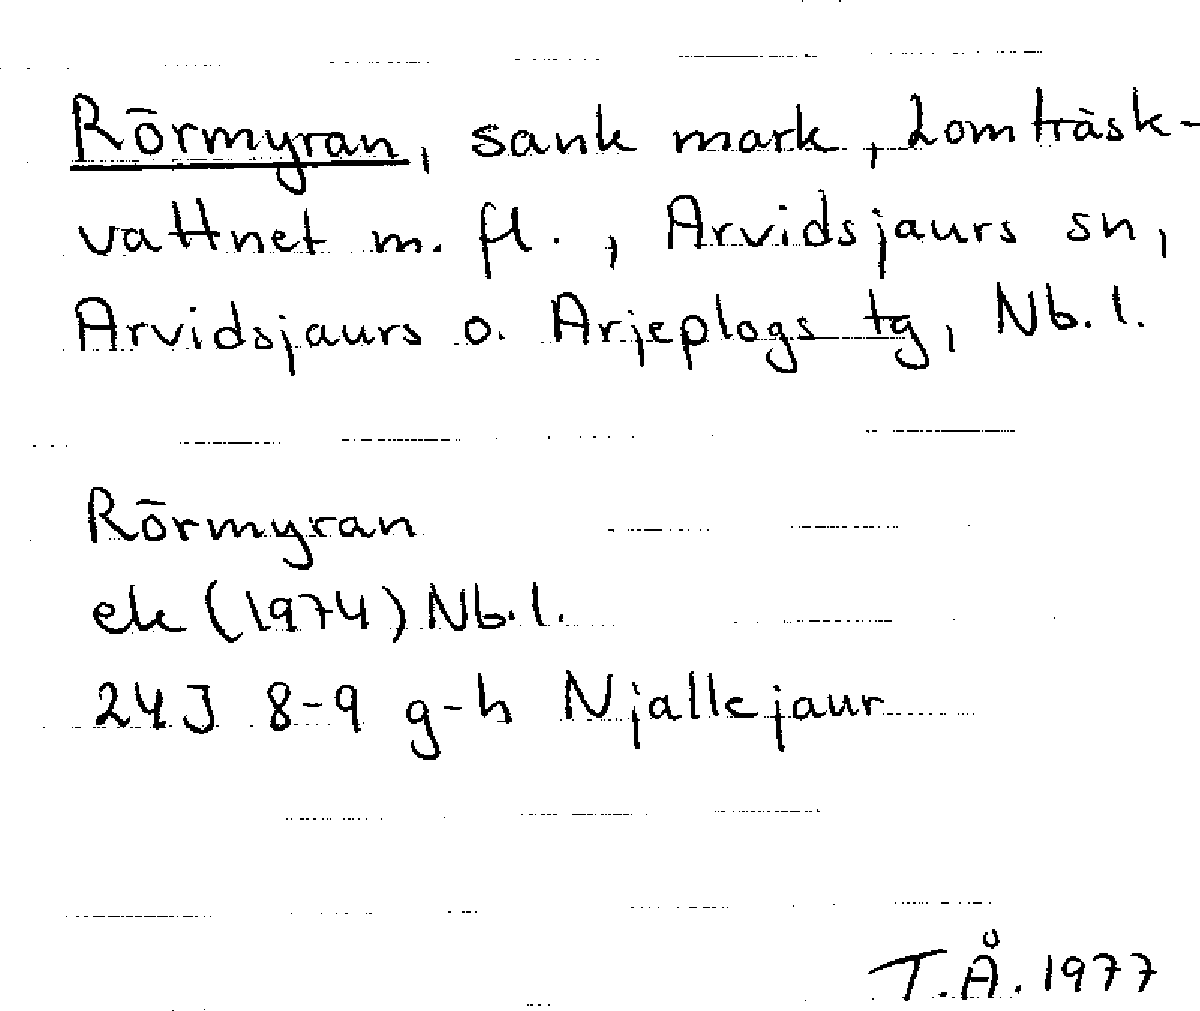 Rörmyran, sank mark, Lomträsk-
vattnet m. fl., Arvidsjaurs sn,
Arvidsjaurs o. Arjeplogs tg, Nb. l.
Rörmyran
ek (1974) Nb. l.
24J 8-9 g-h Njallejaur
T.Å. 1977